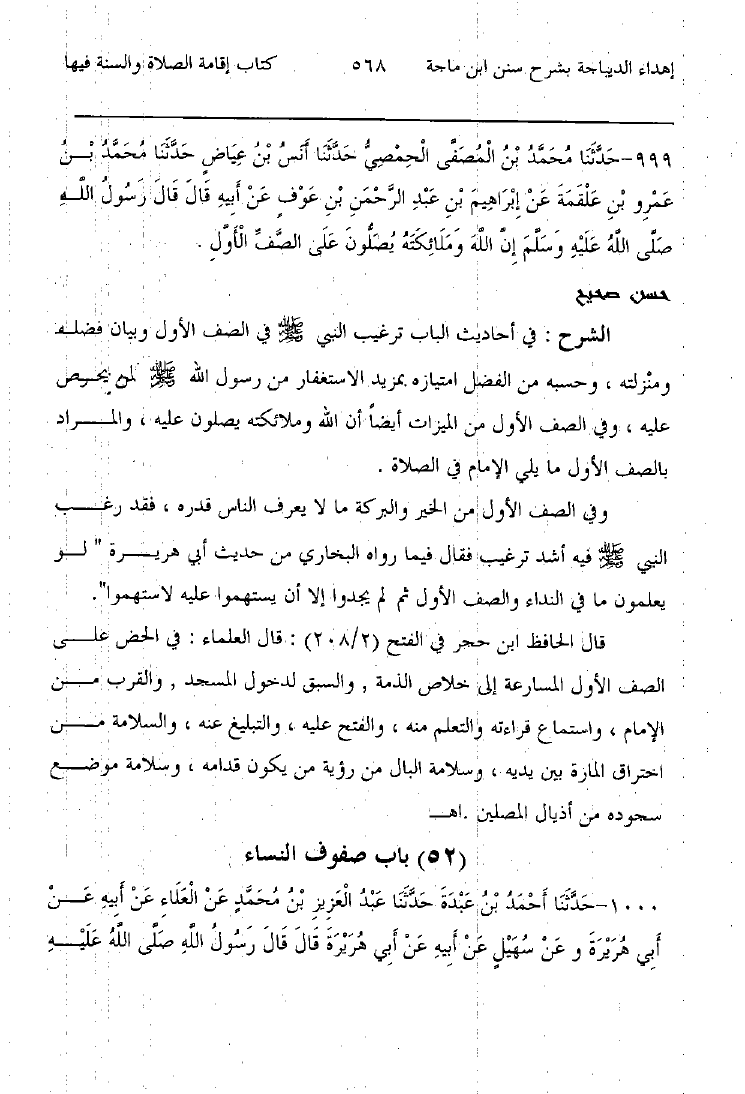 إهداء الديباجة بشرح سنن ابن ماجة ٥٦٨ كتاب إقامة الصلاة والسنة فيها
٩٩٩-حَدَّثَنَا مُحَمَّدُ بْنُ الْمُصَفَّى الْحِمْصِيُّ حَدَّثَنَا أَنَسُ بْنُ عِيَاضٍ حَدَّثَنَا مُحَمَّدُ بْنُ
عَمْرِو بْنِ عَلْقَمَةَ عَنْ إِبْرَاهِيمَ بْنِ عَبْدِ الرَّحْمَنِ بْنِ عَوْفٍ عَنْ أَبِيهِ قَالَ قَالَ رَسُولُ اللَّهِ
صَلَّى اللَّهُ عَلَيْهِ وَسَلَّمَ إِنَّ اللَّهَ وَمَلَائِكَتَهُ يُصَلُّونَ عَلَى الصَّفِّ الْأَوَّلِ .
حسن صحيح
الشرح : في أحاديث الباب ترغيب النبي ﷺ في الصف الأول وبيان فضله
ومنْزلته ، وحسبه من الفضل امتيازه بمزيد الاستغفار من رسول الله ﷺ لمن يحرص
عليه ، وفي الصف الأول من الميزات أيضاً أن الله وملائكته يصلون عليه ، والمراد
بالصف الأول ما يلي الإمام في الصلاة .
وفي الصف الأول من الخير والبركة ما لا يعرف الناس قدره ، فقد رغب
النبي ﷺ فيه أشد ترغيب فقال فيما رواه البخاري من حديث أبي هريرة " لو
يعلمون ما في النداء والصف الأول ثم لم يجدوا إلا أن يستهموا عليه لاستهموا".
قال الحافظ ابن حجر في الفتح (٢٠٨/٢) : قال العلماء : في الحض على
الصف الأول المسارعة إلى خلاص الذمة , والسبق لدخول المسجد , والقرب من
الإمام ، واستماع قراءته والتعلم منه ، والفتح عليه ، والتبليغ عنه ، والسلامة من
اختراق المارة بين يديه ، وسلامة البال من رؤية من يكون قدامه ، وسلامة موضع
سجوده من أذيال المصلين .اهـ
(٥٢) باب صفوف النساء
١٠٠٠-حَدَّثَنَا أَحْمَدُ بْنُ عَبْدَةَ حَدَّثَنَا عَبْدُ الْعَزِيزِ بْنُ مُحَمَّدٍ عَنْ الْعَلَاءِ عَنْ أَبِيهِ عَنْ
أَبِي هُرَيْرَةَ و عَنْ سُهَيْلٍ عَنْ أَبِيهِ عَنْ أَبِي هُرَيْرَةَ قَالَ قَالَ رَسُولُ اللَّهِ صَلَّى اللَّهُ عَلَيْهِ